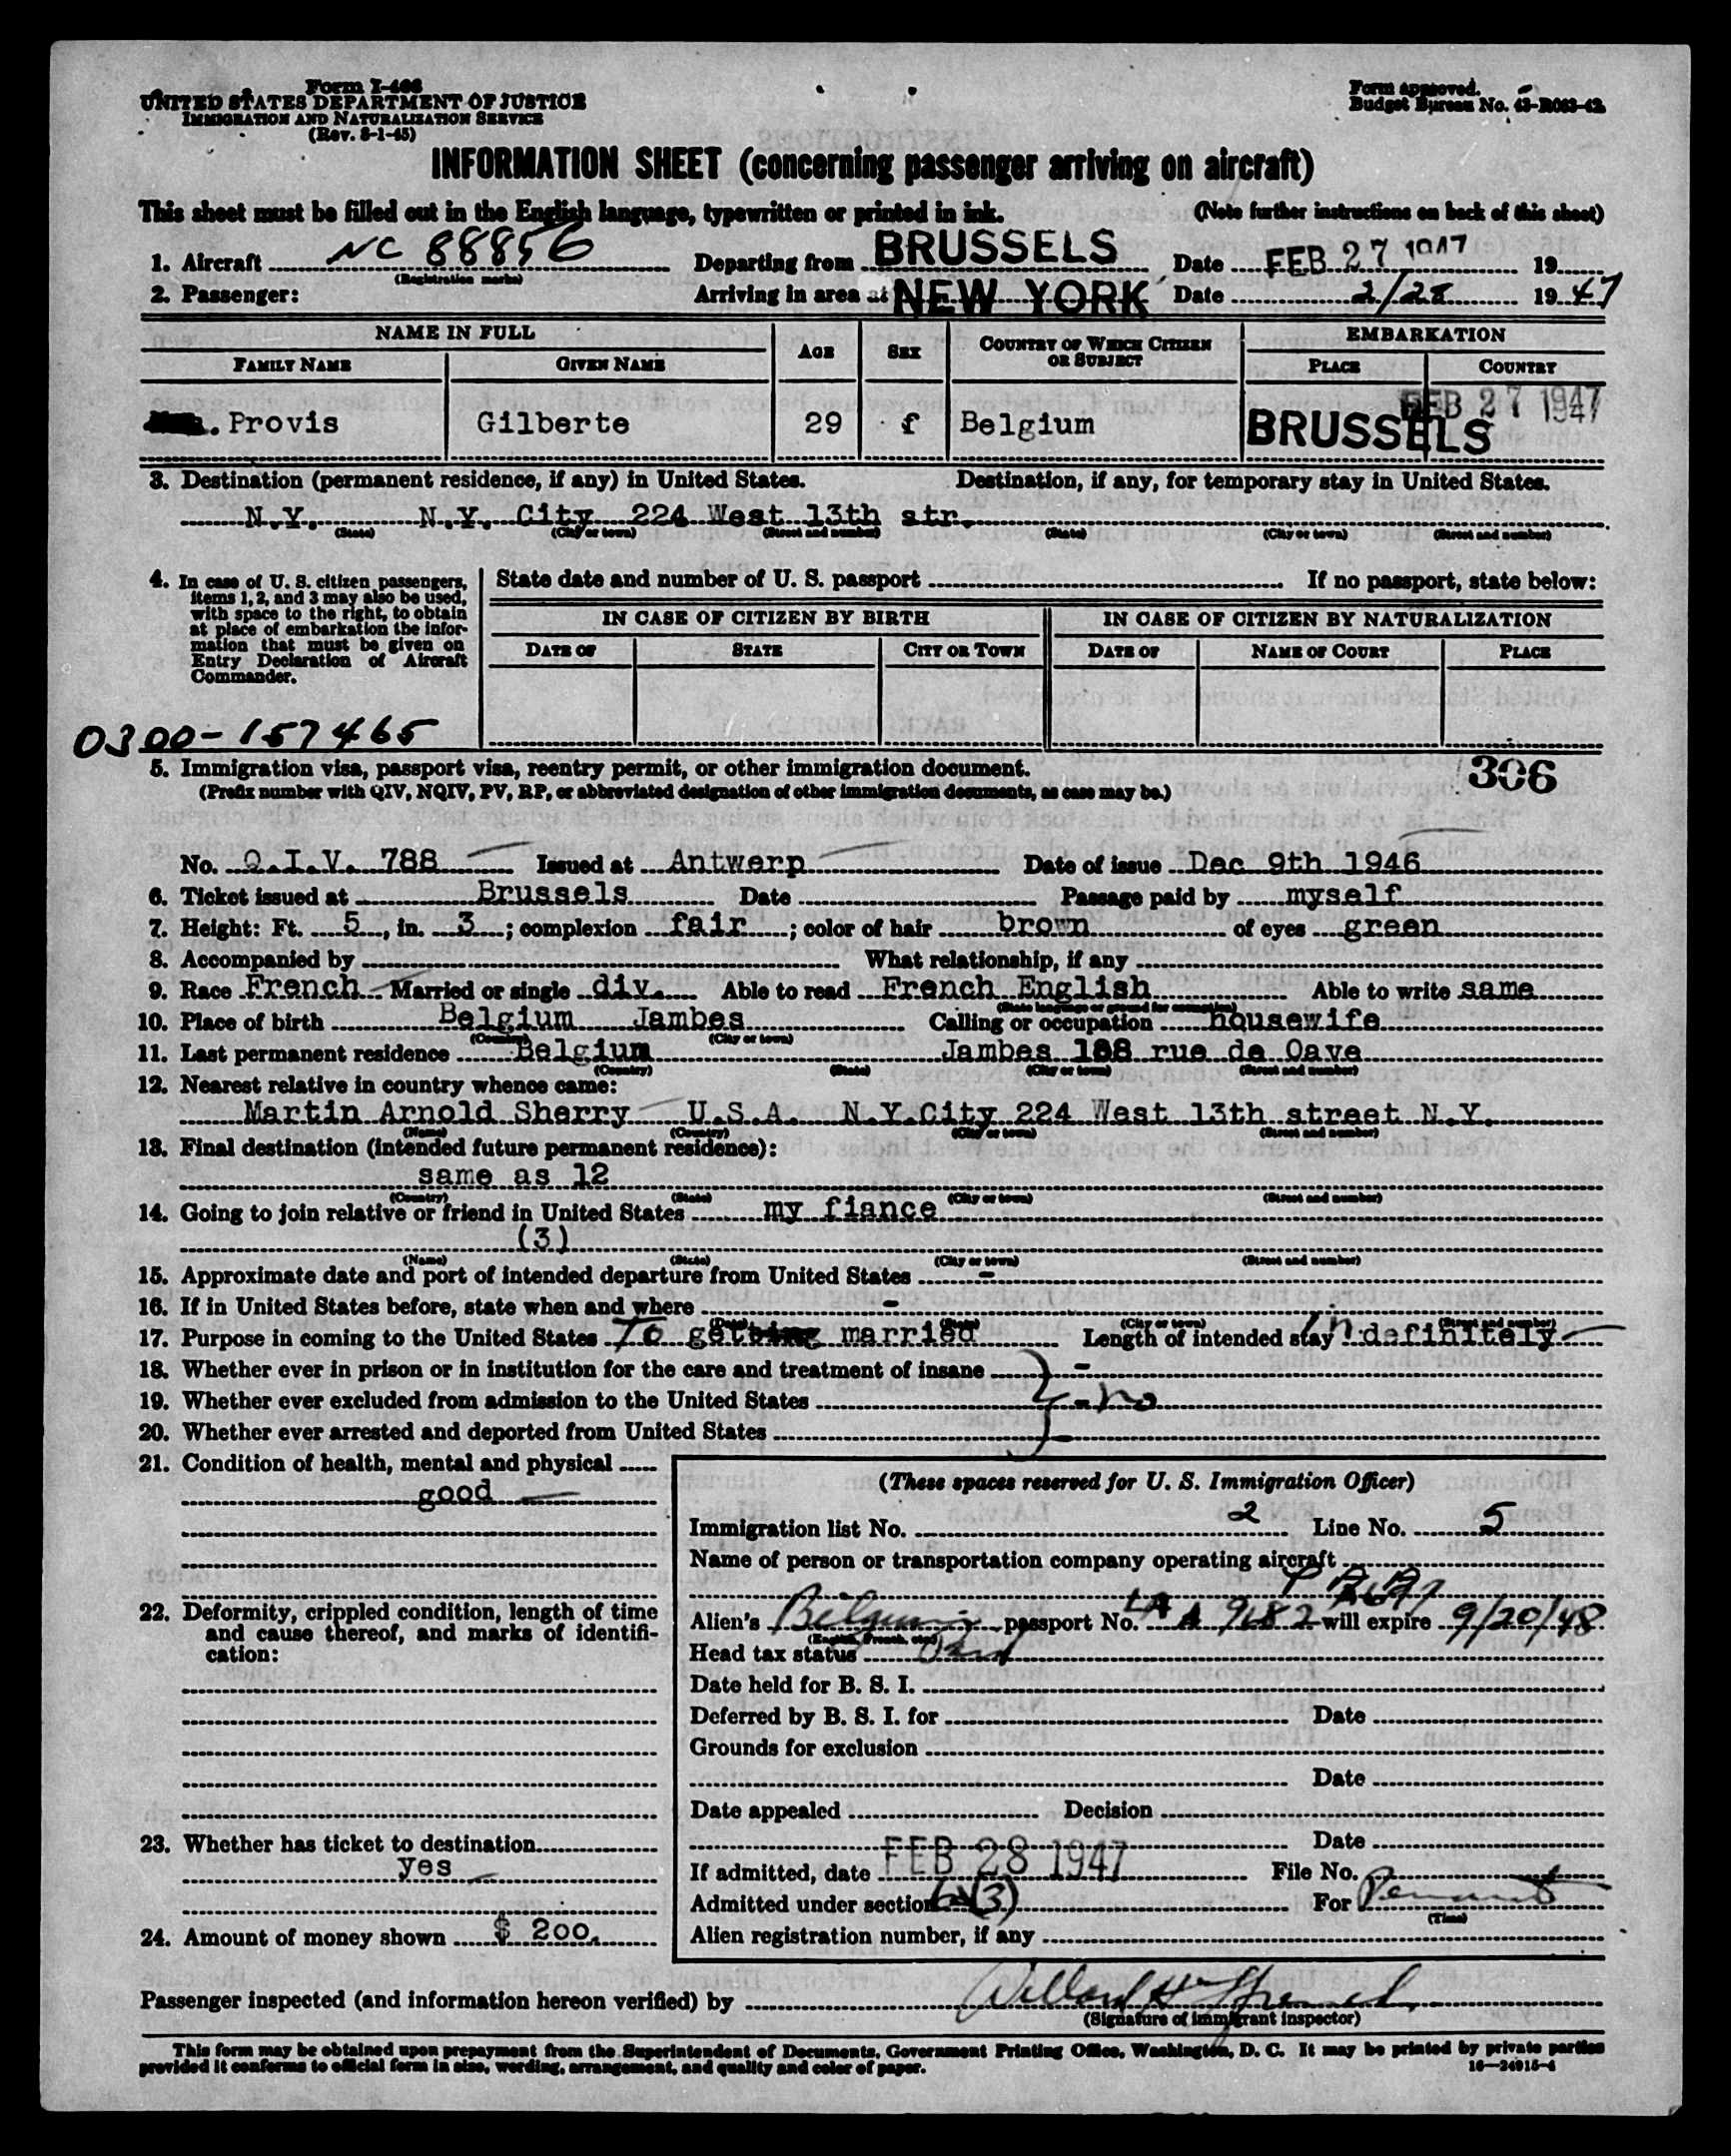 Form I-466
UNITED STATES DEPARTMENT OF JUSTICE
IMMIGRATION AND NATURALIZATION SERVICE
(Rev. 8-1-45)
Form approved.
Budget Bureau No. 43-R083-42
INFORMATION SHEET (concerning passenger arriving on aircraft)
This sheet must be filled out in the English language, typewritten or printed in ink. (Note further instructions on back of this sheet)
1. Aircraft NC 88856 Departing from BRUSSELS Date FEB 27 1947 19
(Registration marks)
2. Passenger: Arriving in area at NEW YORK Date 2/28 1947
NAME IN FULL AGE SEX COUNTRY OF WHICH CITIZEN OR SUBJECT EMBARKATION
FAMILY NAME GIVEN NAME PLACE COUNTRY
FEB 27 1947
Provis Gilberte 29 f Belgium BRUSSELS
3. Destination (permanent residence, if any) in United States. Destination, if any, for temporary stay in United States.
N.Y. N.Y. City 224 West 13th str.
(State) (City or town) (Street and number) (State) (City or town) (Street and number)
4. In case of U. S. citizen passengers, items 1, 2, and 3 may also be used, with space to the right, to obtain at place of embarkation the information that must be given on Entry Declaration of Aircraft Commander.
State date and number of U. S. passport If no passport, state below:
IN CASE OF CITIZEN BY BIRTH IN CASE OF CITIZEN BY NATURALIZATION
DATE OF STATE CITY OR TOWN DATE OF NAME OF COURT PLACE
0300-157465
5. Immigration visa, passport visa, reentry permit, or other immigration document. 306
(Prefix number with QIV, NQIV, PV, RP, or abbreviated designation of other immigration documents, as case may be.)
No. Q.I.V. 788 Issued at Antwerp Date of issue Dec 9th 1946
6. Ticket issued at Brussels Date Passage paid by myself
7. Height: Ft. 5, in. 3; complexion fair; color of hair brown of eyes green
8. Accompanied by What relationship, if any
9. Race French Married or single div. Able to read French English Able to write same
(State language or ground for exemption)
10. Place of birth Belgium Jambes Calling or occupation housewife
(Country) (City or town)
11. Last permanent residence Belgium Jambes 188 rue de Dave
(Country) (State) (City or town) (Street and number)
12. Nearest relative in country whence came:
Martin Arnold Sherry U.S.A. N.Y.City 224 West 13th street N.Y.
(Name) (Country) (City or town) (Street and number)
13. Final destination (intended future permanent residence):
same as 12
(Country) (State) (City or town) (Street and number)
14. Going to join relative or friend in United States my fiance
(3)
(Name) (State) (City or town) (Street and number)
15. Approximate date and port of intended departure from United States -
16. If in United States before, state when and where -
(Date) (State) (City or town) (Street and number)
17. Purpose in coming to the United States To get married Length of intended stay indefinitely
18. Whether ever in prison or in institution for the care and treatment of insane -
19. Whether ever excluded from admission to the United States - no
20. Whether ever arrested and deported from United States -
21. Condition of health, mental and physical
good
22. Deformity, crippled condition, length of time and cause thereof, and marks of identification:
23. Whether has ticket to destination
yes
24. Amount of money shown $ 200.
(These spaces reserved for U. S. Immigration Officer)
Immigration list No. 2 Line No. 5
Name of person or transportation company operating aircraft
Alien's Belgium passport No. 9682 will expire 9/20/48
(English, French, etc.)
Head tax status Paid
Date held for B. S. I.
Deferred by B. S. I. for Date
Grounds for exclusion
Date
Date appealed Decision
Date
If admitted, date FEB 28 1947 File No.
Admitted under section (3) For
(Time)
Alien registration number, if any
Passenger inspected (and information hereon verified) by Willard H
(Signature of immigrant inspector)
This form may be obtained upon prepayment from the Superintendent of Documents, Government Printing Office, Washington, D. C. It may be printed by private parties
provided it conforms to official form in size, wording, arrangement, and quality and color of paper. 16—24915-4